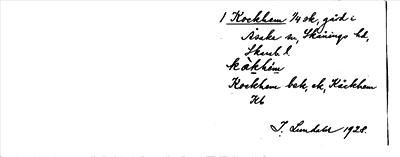 1 Kockhem 1/4 sk, gård i
Asaka sn, Skånings hd,
Skarab. l
kåkhèm
Kockhem bek, sk, Kåckhem
Hb
I. Lundahl 1928.